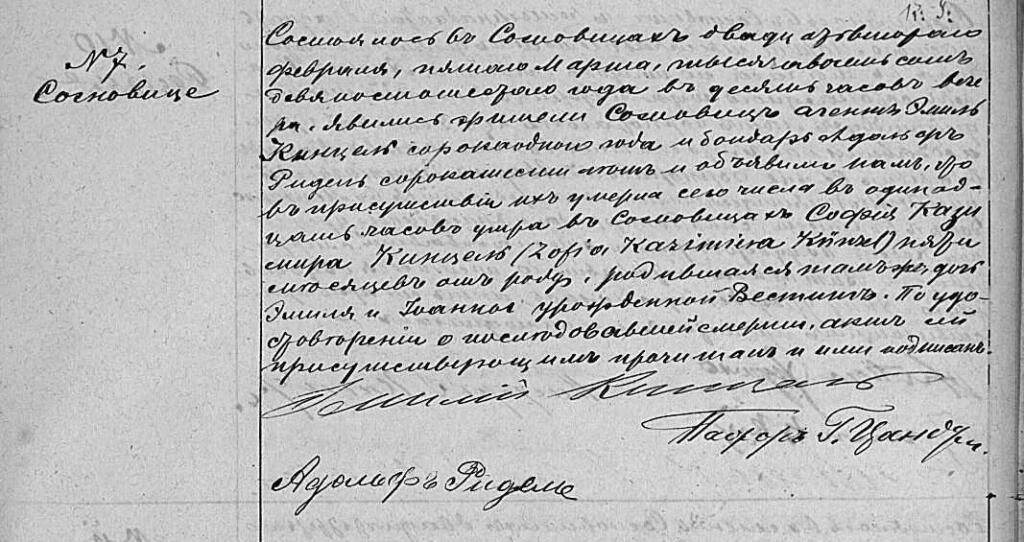 N 7.
Сосновице
Состоялось въ Сосновицахъ двадцатьвтораго
февраля, пятаго Марта, тысяча восемьсотъ
девяностошестаго года въ десять часовъ вече
ра. Явились жители Сосновицъ агентъ Эмиль
Кинцель сорокаодного года и бондарь Адольфъ
Ридель сорокашести лѣтъ и объявили намъ, что
въ присутствіи ихъ умерла сего числа въ одинад-
цать часовъ утра въ Сосновицахъ Софія Кази
мира Кинцель (Zofia Kazimira Künzel) пяти
мѣсяцевъ отъ роду, родившаяся тамъже, дочь
Эмиля и Іоанны урожденной Вестинъ. По удо-
стовтореніи о послѣдовавшей смерти, актъ сей
присутствующимъ прочитанъ и ими подписанъ.
Эмилій Кинцель
Пасторъ Г. Цандеръ.
Адольфъ Ридель